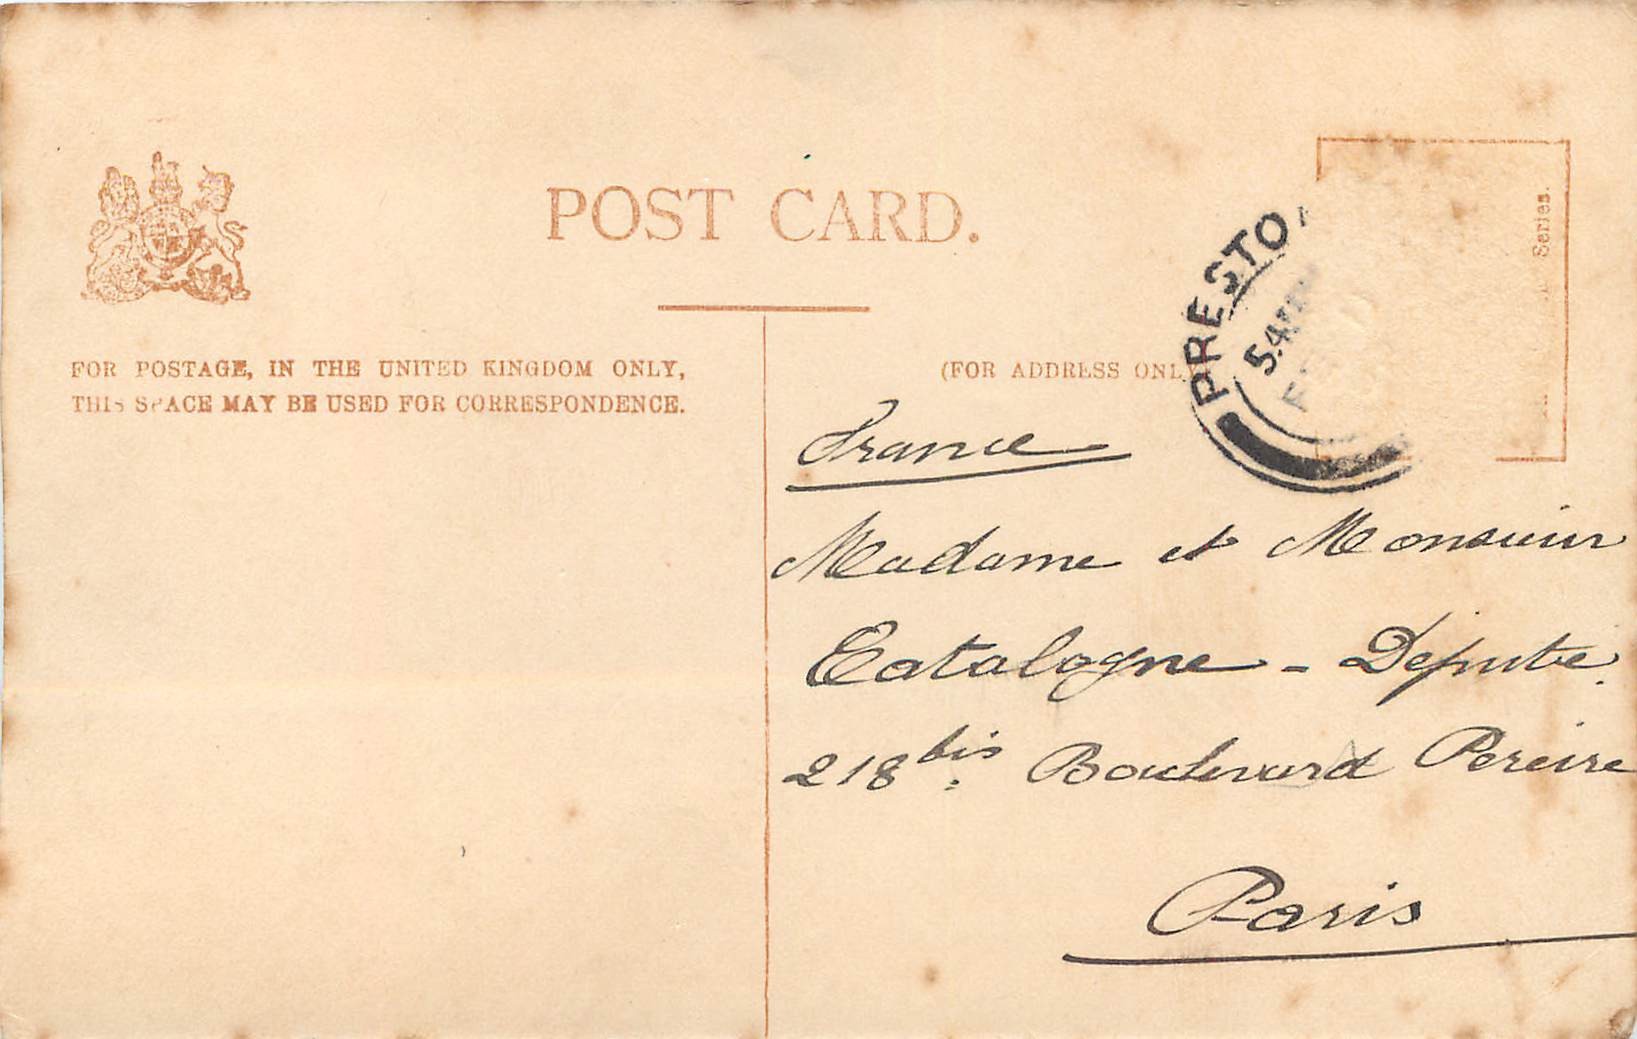 POST CARD.
FOR POSTAGE, IN THE UNITED KINGDOM ONLY,
THIS SPACE MAY BE USED FOR CORRESPONDENCE.
(FOR ADDRESS ONLY
PRESTO
Series.
France
Madame et Monsieur
Catalogne - Députe.
218 bis Boulevard Pereire
Paris